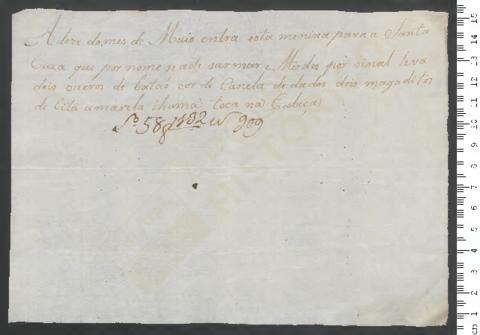 A doze do mes de Maio entra esta menina para a Santa
Caza que por nome se ade xamar Mer por sinal leva
dois cueros de baiaõ cor de Canela dados dois magaditos
de Fita amarela i huma toca na Cabeça
Nº 58 f 1132 v 909